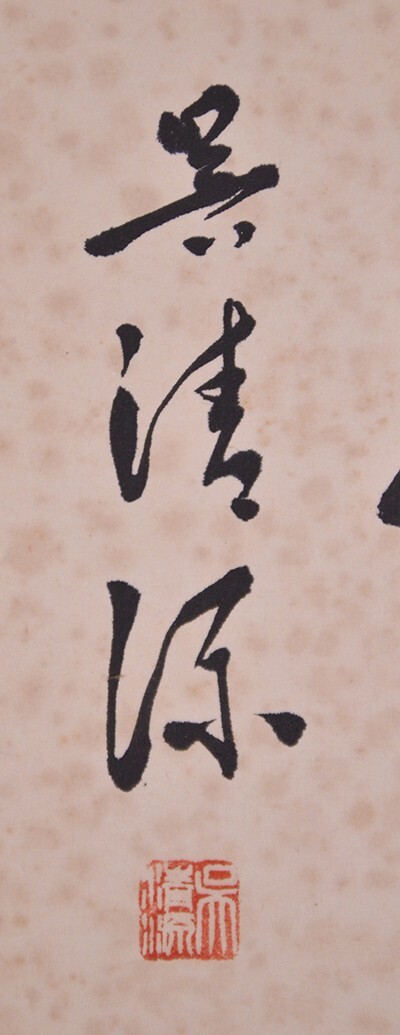 吳清源
吳清源